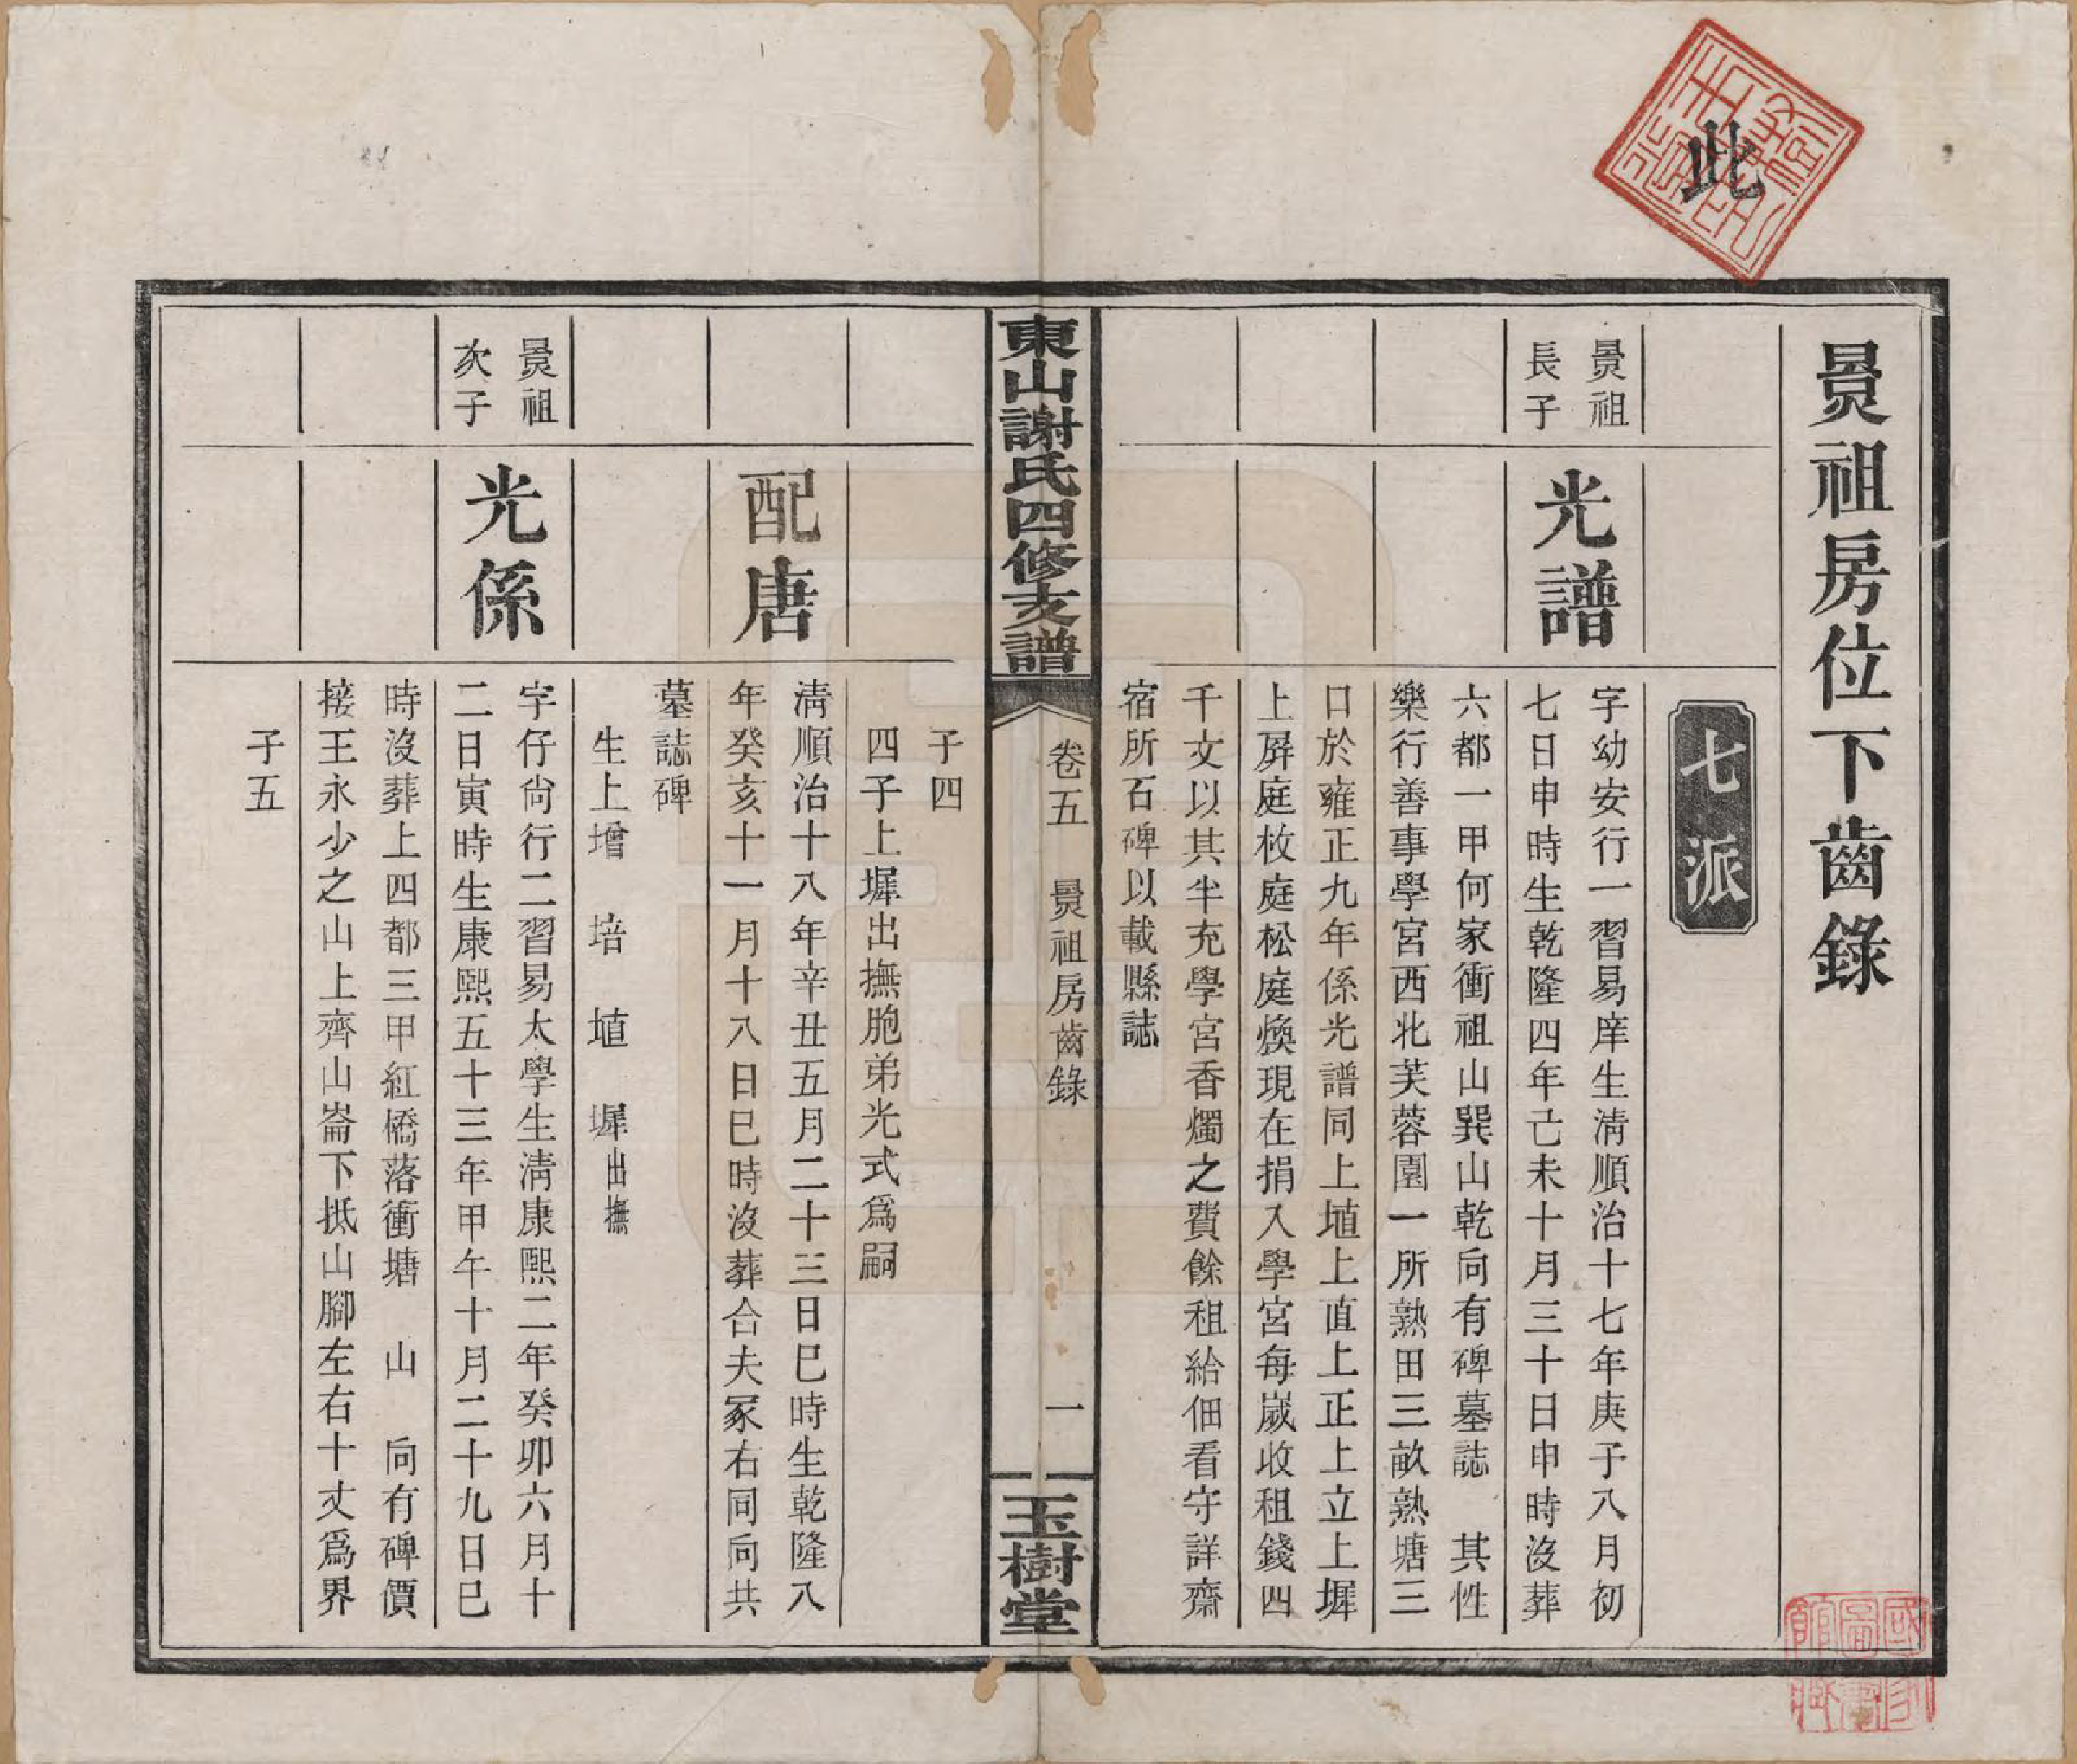 此
景祖房位下齒錄
七派
景祖
長子
光譜
字幼安行一習易庠生淸順治十七年庚子八月初
七日申時生乾隆四年己未十月三十日申時沒葬
六都一甲何家衝祖山巽山乾向有碑墓誌　其性
樂行善事學宮西北芙蓉園一所熟田三畝熟塘三
口於雍正九年係光譜同上埴上直上正上立上墀
上屛庭枚庭松庭煥現在捐入學宮每嵗收租錢四
千文以其半充學宮香燭之費餘租給佃看守詳齋
宿所石碑以載縣誌
東山謝氏四修支譜
卷五　景祖房齒錄　一
玉樹堂
子四
四子上墀出撫胞弟光式爲嗣
配唐
淸順治十八年辛丑五月二十三日巳時生乾隆八
年癸亥十一月十八日巳時沒葬合夫冢右同向共
墓誌碑
生上增　培　埴　墀出撫
景祖
次子
光係
字仔尙行二習易太學生淸康熙二年癸卯六月十
二日寅時生康熙五十三年甲午十月二十九日巳
時沒葬上四都三甲紅橋落衝塘　山　向有碑價
接王永少之山上齊山崙下抵山腳左右十丈爲界
子五